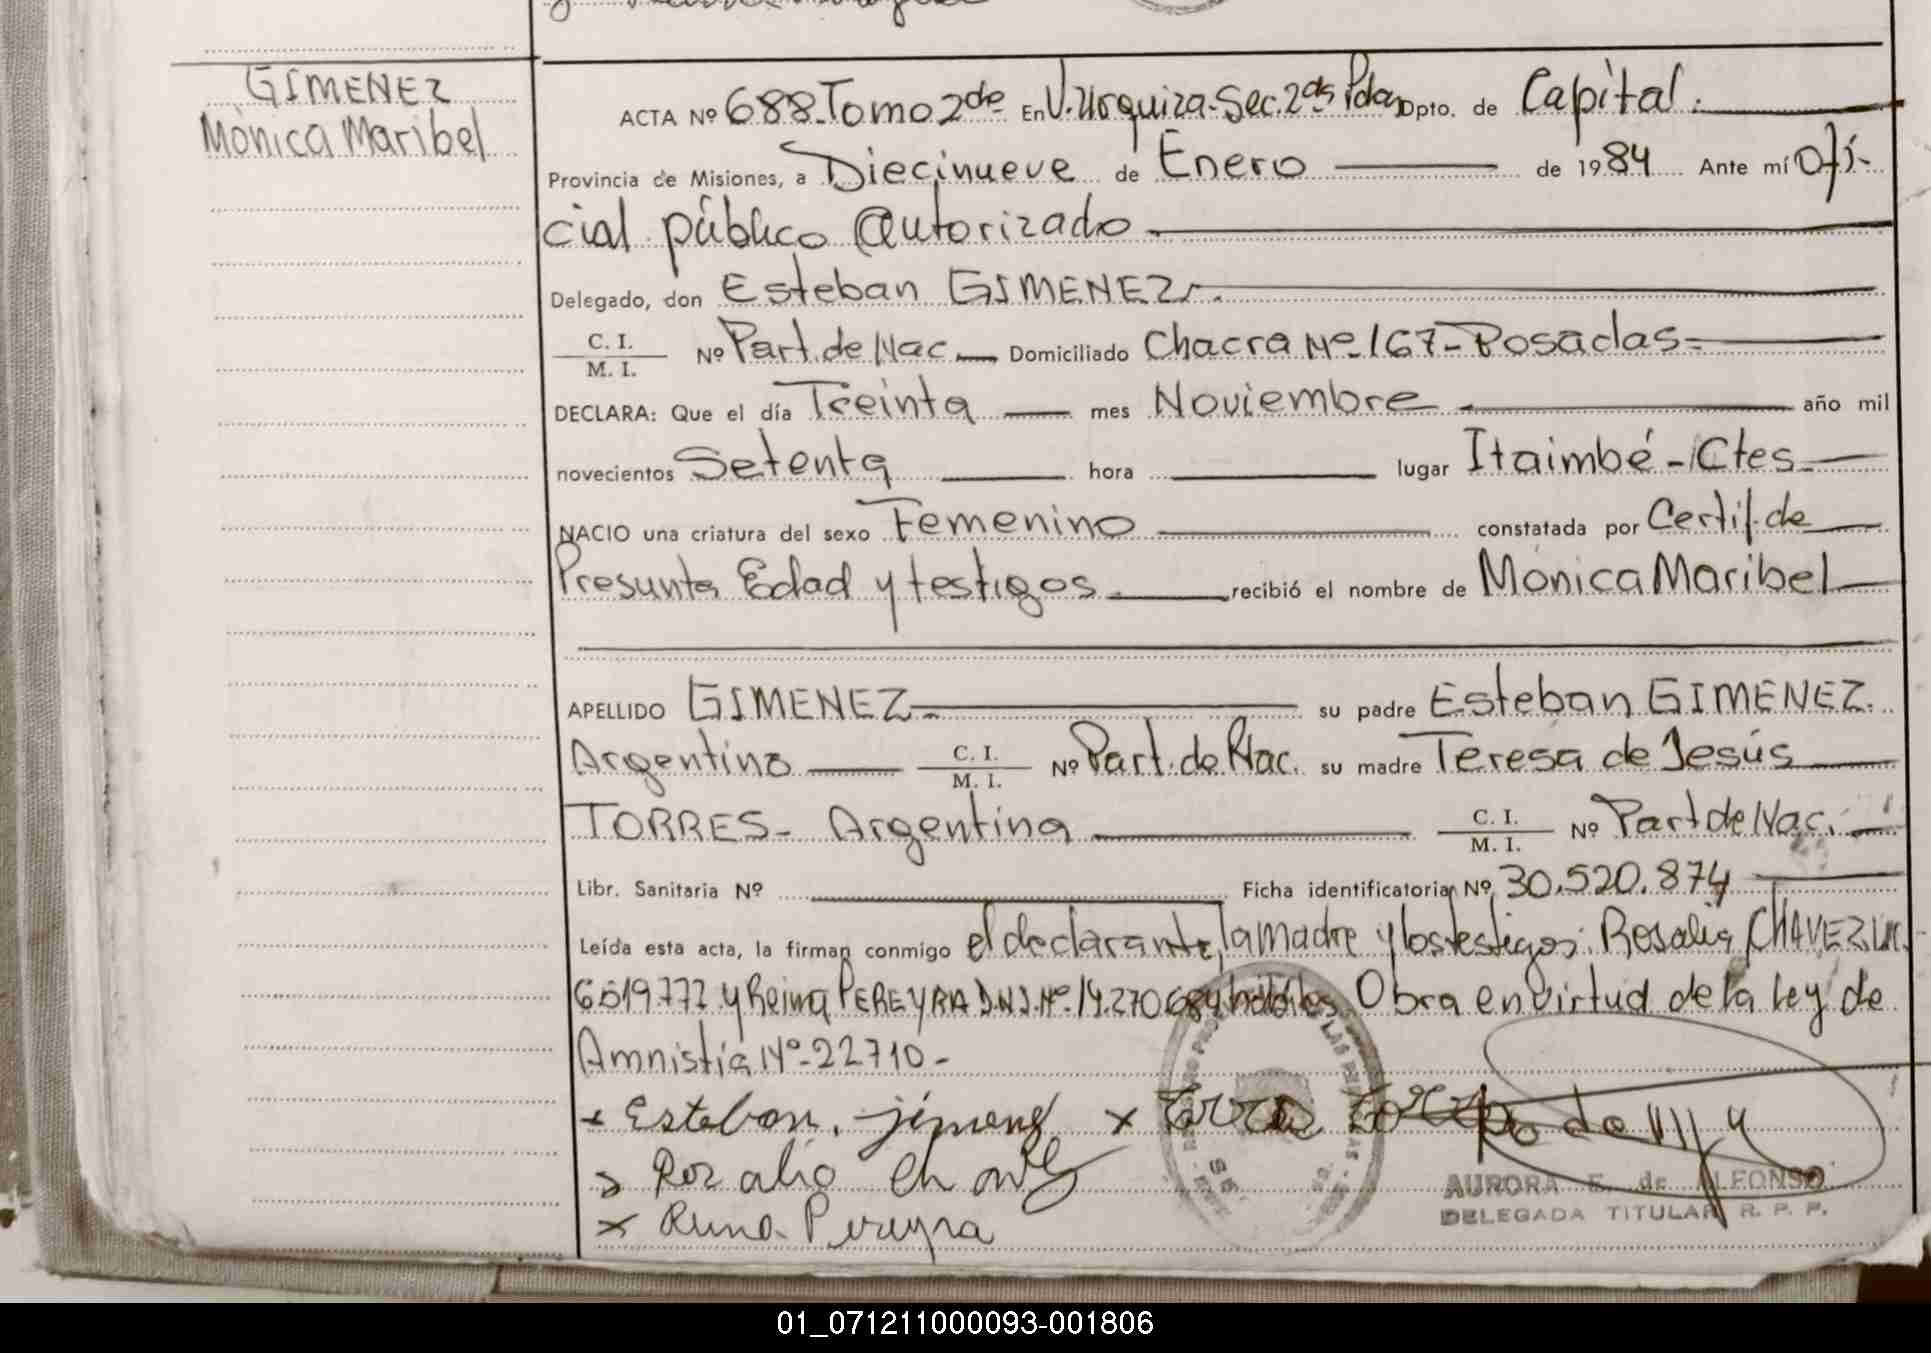 GIMENEZ
Mónica Maribel
ACTA Nº 688-Tomo 2do En V. Urquiza-Sec. 2da Pdas Dpto. de Capital.
Provincia de Misiones, a Diecinueve de Enero de 1984 Ante mí Ofi-
cial público Autorizado
Delegado, don Esteban GIMENEZ.
C. I.
M. I.
Nº Part. de Nac. Domiciliado Chacra Nº 167-Posadas-
DECLARA: Que el día Treinta mes Noviembre año mil
novecientos Setenta hora lugar Itaimbé-Ctes
NACIO una criatura del sexo Femenino constatada por Certif. de
Presunta Edad y testigos. recibió el nombre de Mónica Maribel
APELLIDO GIMENEZ su padre Esteban GIMENEZ.
Argentino C. I.
M. I.
Nº Part. de Nac. su madre Teresa de Jesús
TORRES- Argentina C. I.
M. I.
Nº Part de Nac.
Libr. Sanitaria Nº Ficha identificatoria Nº 30.520.874
Leída esta acta, la firman conmigo el declarante, la madre y los testigos: Rosalia CHAVEZ
6519777 y Reina PEREYRA D.N.I. Nº 14.270.684 hábiles Obra en virtud de la Ley de
Amnistía Nº-22710-
x Esteban. jimenez x Torres
x Rozalio chavez
AURORA E. de ALFONSO
DELEGADA TITULAR R. P. P.
x Reina Pereyra
01_071211000093-001806